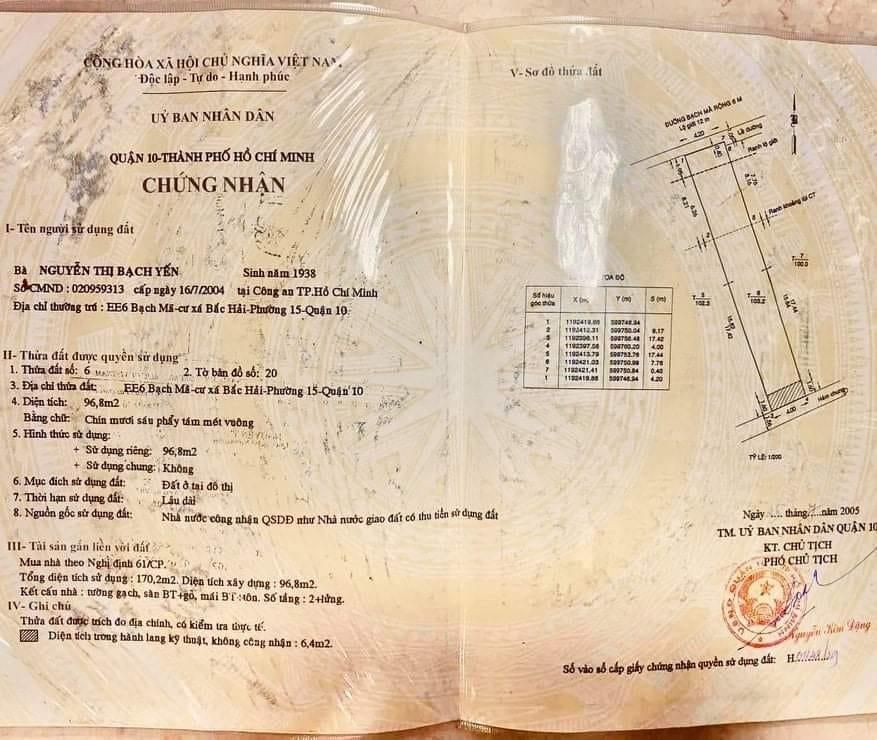 CỘNG HÒA XÃ HỘI CHỦ NGHĨA VIỆT NAM
Độc lập - Tự do - Hạnh phúc
UỶ BAN NHÂN DÂN
QUẬN 10-THÀNH PHỐ HỒ CHÍ MINH
CHỨNG NHẬN
I- Tên người sử dụng đất
Bà NGUYỄN THỊ BẠCH YẾN Sinh năm 1938
Số CMND : 020959313 cấp ngày 16/7/2004 tại Công an TP.Hồ Chí Minh
Địa chỉ thường trú : EE6 Bạch Mã-cư xá Bắc Hải-Phường 15-Quận 10
II- Thửa đất được quyền sử dụng
1. Thửa đất số: 6 2. Tờ bản đồ số: 20
3. Địa chỉ thửa đất: EE6 Bạch Mã-cư xá Bắc Hải-Phường 15-Quận 10
4. Diện tích: 96,8m2
Bằng chữ: Chín mươi sáu phẩy tám mét vuông
5. Hình thức sử dụng:
+ Sử dụng riêng: 96,8m2
+ Sử dụng chung: Không
6. Mục đích sử dụng đất: Đất ở tại đô thị
7. Thời hạn sử dụng đất: Lâu dài
8. Nguồn gốc sử dụng đất: Nhà nước công nhận QSDĐ như Nhà nước giao đất có thu tiền sử dụng đất
III- Tài sản gắn liền với đất
Mua nhà theo Nghị định 61/CP.
Tổng diện tích sử dụng : 170,2m2. Diện tích xây dựng : 96,8m2.
Kết cấu nhà : tường gạch, sàn BT+gỗ, mái BT+tôn. Số tầng : 2+lửng.
IV- Ghi chú
Thửa đất được trích đo địa chính, có kiểm tra thực tế.
Diện tích trong hành lang kỹ thuật, không công nhận : 6,4m2.
V- Sơ đồ thửa đất
ĐƯỜNG BẠCH MÃ RỘNG 6 M
Lộ giới 12 m
4.20
Lề đường
Ranh lộ giới
Ranh khoảng lùi CT
7.75
6.26
8.21
17.44
15.84
15.82
17.42
T 7 100.0
T 5 102.3
T 6 103.2
Hẻm chung
4.00
1.60
1.60
TỶ LỆ: 1/200
TỌA ĐỘ
Số hiệu góc thửa X (m) Y (m) S (m)
1 1192419.86 599746.94
2 1192412.31 599750.04 8.17
3 1192396.11 599756.48 17.42
4 1192397.58 599760.20 4.00
5 1192413.79 599753.76 17.44
6 1192421.03 599750.99 7.76
7 1192421.41 599750.84 0.40
1 1192419.86 599746.94 4.20
Ngày tháng 7 năm 2005
TM. UỶ BAN NHÂN DÂN QUẬN 10
KT. CHỦ TỊCH
PHÓ CHỦ TỊCH
Nguyễn Kim Đặng
Số vào sổ cấp giấy chứng nhận quyền sử dụng đất: H